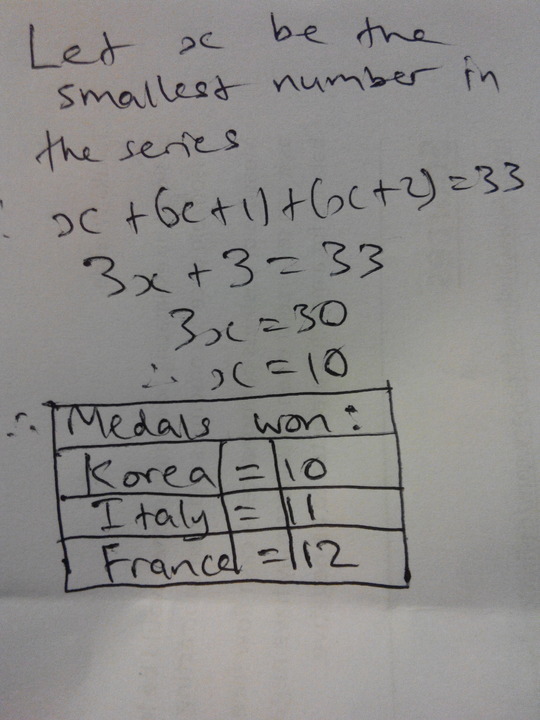 Let x be the
smallest number in
the series
∴ x + (x + 1) + (x + 2) = 33
3x + 3 = 33
3x = 30
∴ x = 10
∴ Medals won:
Korea = 10
Italy = 11
France = 12